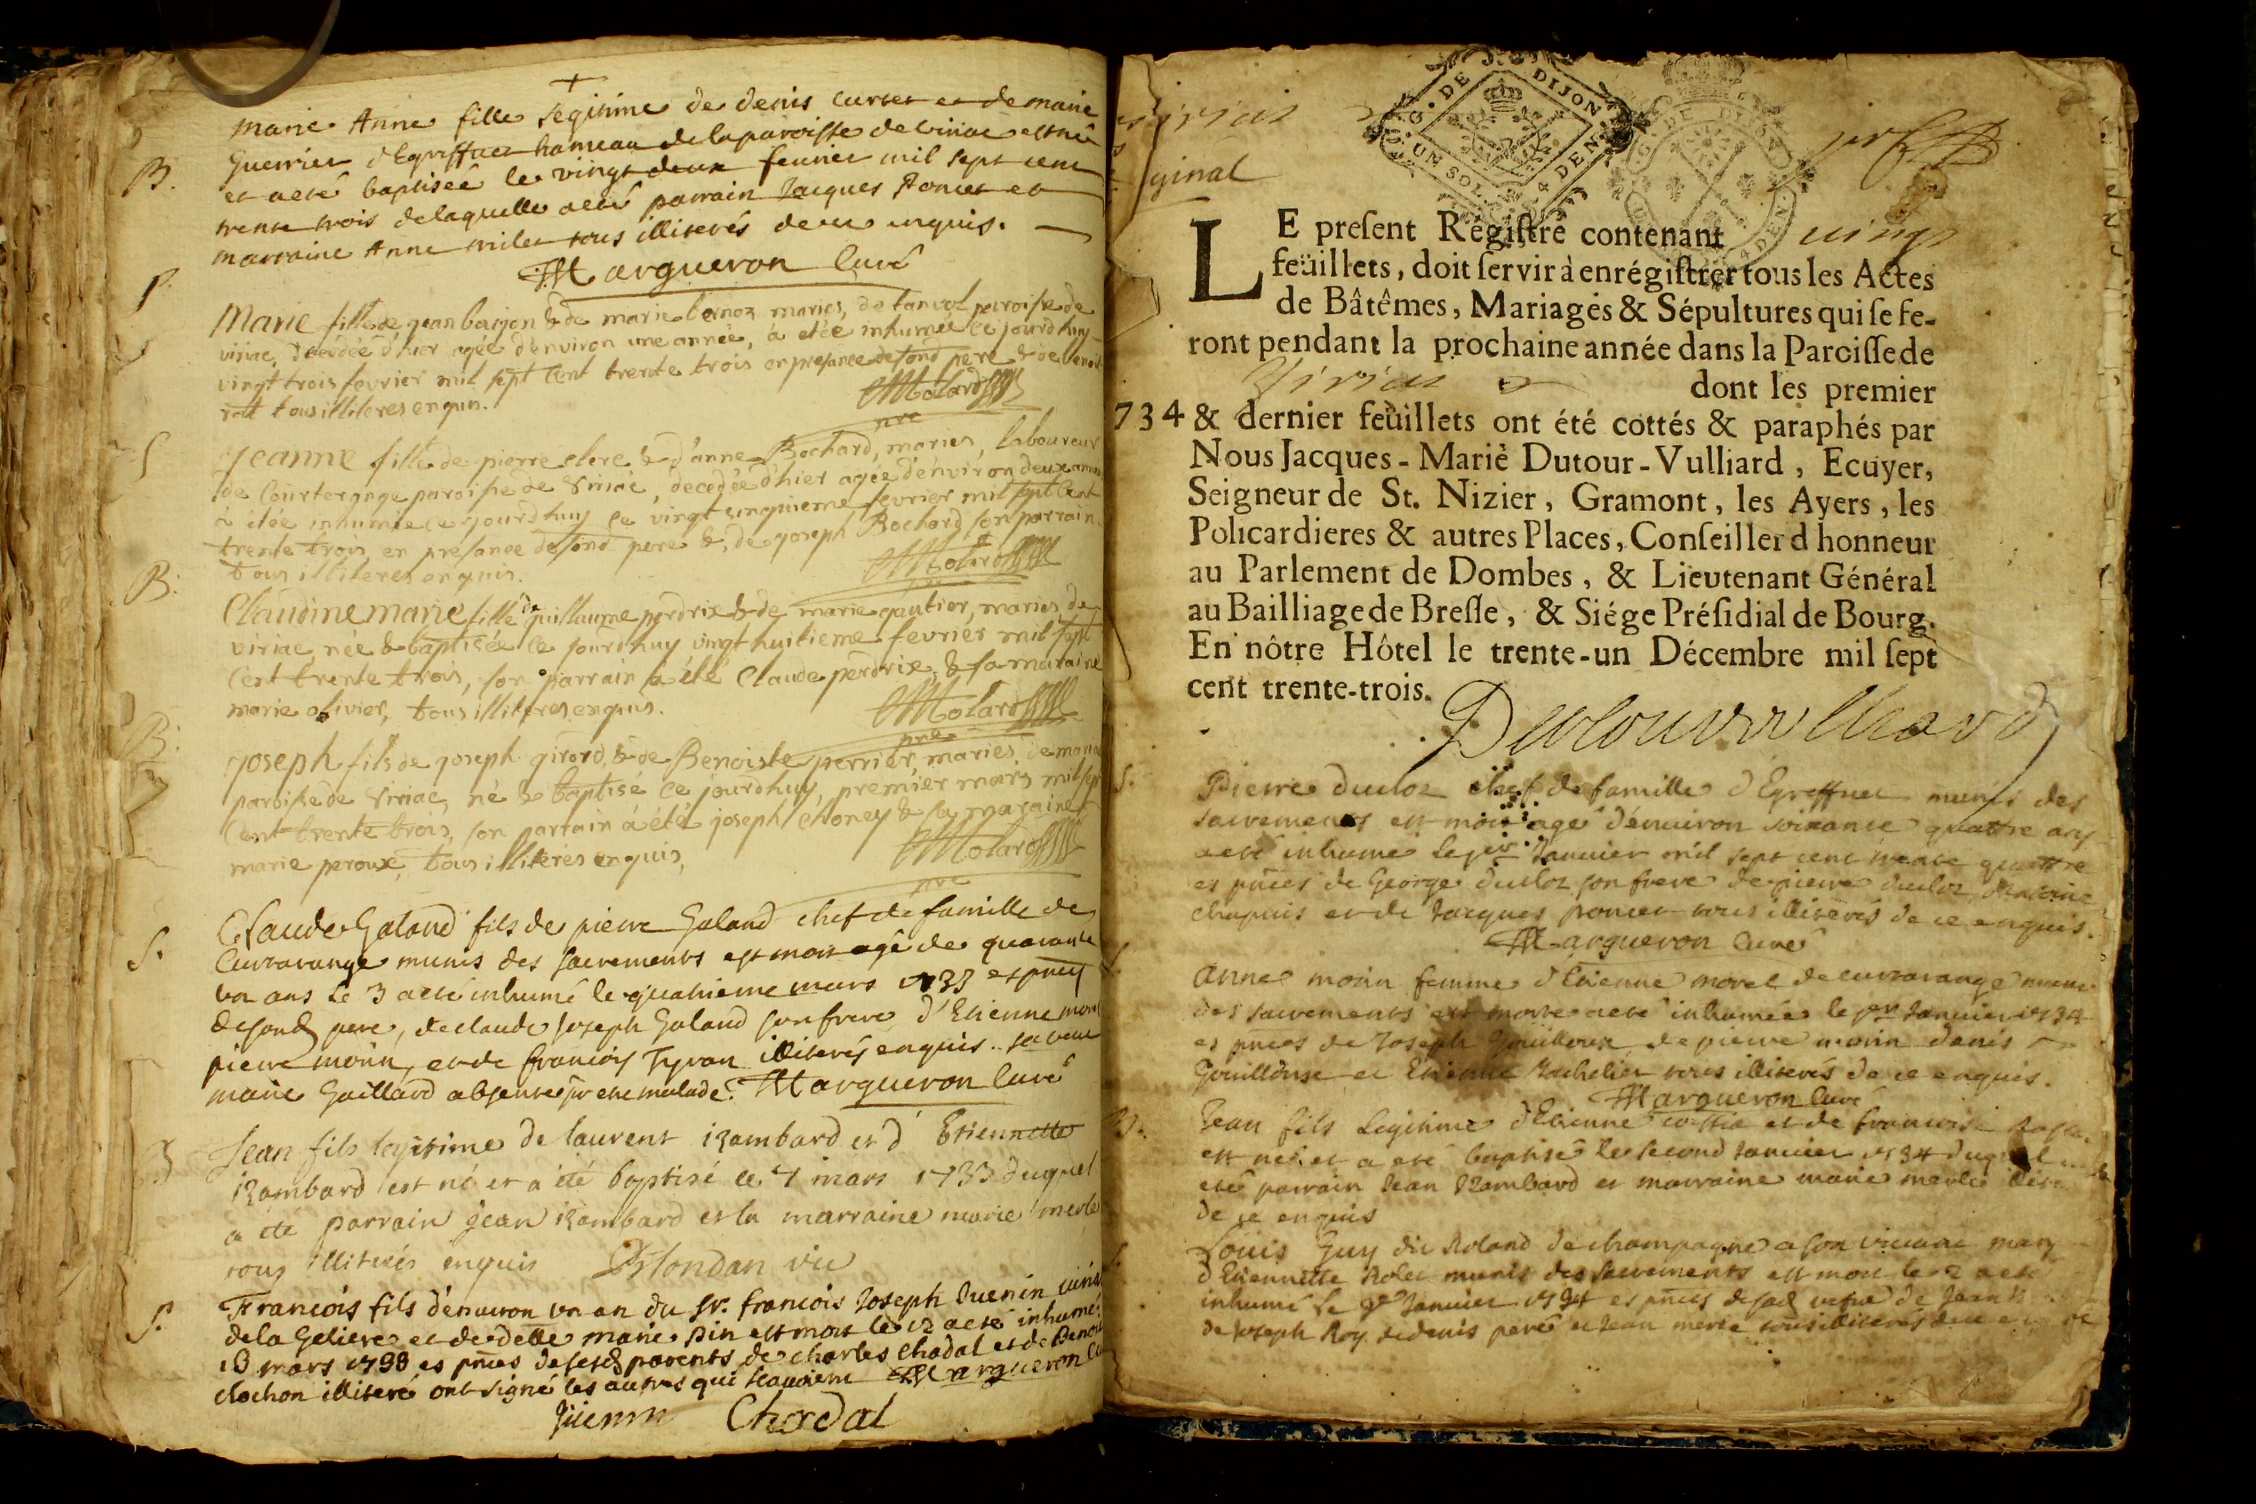 B.
Marie Anne fille legitime de denis curtet et de marie
Guerrier d'Egreffuet hameau de la paroisse de viriac est née
et a eté baptiseé le vingt deux feurier mil sept cent
trente trois de laquelle a eté parrain Jacques Poncet et
marraine Anne tous illiterés de ce enquis.
Margueron Curé
Marie fille de jean & de marie mariés, de paroisse de
viriac, décédée d'hier agée d'environ une année, à etée inhumée ce jourd'huy
vingt trois fevrier mil sept cent trente trois en presance desond pere & de
tous illiteres enquis.
Molard
pre
S
Jeanne fille de pierre clerc & d'anne Bochard, mariés, laboureur
de Courterange paroisse de Viriac, decedée d'hier agée d'environ deux
à etée inhumée ce jourd'huy ce vingt cinquieme fevrier mil sept cent
trente trois, en presance desond pere &, de joseph Bochard son parrain
tous illiteres enquis.
Molard
B.
Claudine marie fille de guillaume perdrix & de marie gautier, mariés, de
viriac, née & baptisée ce jourd'huy vingt huitieme fevrier mil sept
cent trente trois, son parrain à été Claude perdrix, & sa maraine
marie olivier, tous illiteres enquis.
Molard
pre
B.
joseph fils de joseph girard, & de Benoiste perrier, mariés, de
paroisse de Viriac, né & baptisé ce jourd'huy, premier mars mil sept
cent trente trois, son parrain à été joseph choney & sa maraine
marie peroux, tous illiterés enquis,
Molard
pre
S.
Claude Galand fils de pierre Galand chef de famille de
Curtarange munis des sacrements est mort agé de quarante
un ans le 3 a eté inhumé le quatrieme mars 1733 es pnces
desond pere, de claude Joseph Galand son frere, d'Etienne morel
pierre morin, et de francois Tyran illiterés enquis.. sa veuve
marie Gaillard absente pr etre malade. Margueron Curé
B
Jean fils legitime de laurent Rambard et d'Etiennette
Rambard est né et a été baptisé le 7 mars 1733 duquel
a été parrain jean Rambard et la marraine marie merle
tous illiterés enquis Blondan vic
S.
Francois fils d'enuiron un an du Sr. francois Joseph
de la Geliere et de delle marie Pin est mort le 12 a eté inhumé
13 mars 1733 es pnces de sesd parents de charles Chadal et de Benoit
clochon illiteré ont signé les autres qui scauoient Margueron
Chardal
Viriat
ginal
G. DE DIJON
UN SOL. 4 DEN.
G. DE DIJON
4 DEN.
LE present Régistre contenant vingt
feüillets, doit servir à enrégistrer tous les Actes
de Bâtêmes, Mariages & Sépultures qui se fe-
ront pendant la prochaine année dans la Paroisse de
Viriat dont les premier
734 & dernier feüillets ont été cottés & paraphés par
Nous Jacques-Marie Dutour-Vulliard, Ecuyer,
Seigneur de St. Nizier, Gramont, les Ayers, les
Policardieres & autres Places, Conseiller d honneur
au Parlement de Dombes, & Lieutenant Général
au Bailliage de Bresse, & Siége Présidial de Bourg.
En nôtre Hôtel le trente-un Décembre mil sept
cent trente-trois.
Dutourvulliard
S.
Pierre ducloz chef de famille d'Egreffuet munis des
sacrements est mort agé d'enuiron soixante quattre ans
a eté inhumé le per Januier mil sept cent trente quattre
es pnces de George ducloz son frere de pierre ducloz Antoine
chapuis et de Jacques poncet tous illiterés de ce enquis.
Margueron Curé
Anne morin femme d'Etienne morel de curtarange munie
des sacrements est morte a eté inhumée le per Januier 1734
es pnces de Joseph Gouilloux de pierre morin denis
Gouilloux et Etienne Bachelier tous illiterés de ce enquis.
Margueron Curé
B.
Jean fils legitime d'Etienne et de francoise
est né et a eté baptisé le second Januier 1734 duquel a
eté parrain Jean Rambard et marraine marie merle
de ce enquis
Louis Guy dit Roland de champagne a son viuant mary
d'Etiennette Rolet munis des sacrements est mort le 2 a eté
inhumé le Januier 1734 es pnces de sad vefue de Jean
de Joseph Roy de denis peré et Jean merle tous illiterés de ce enquis